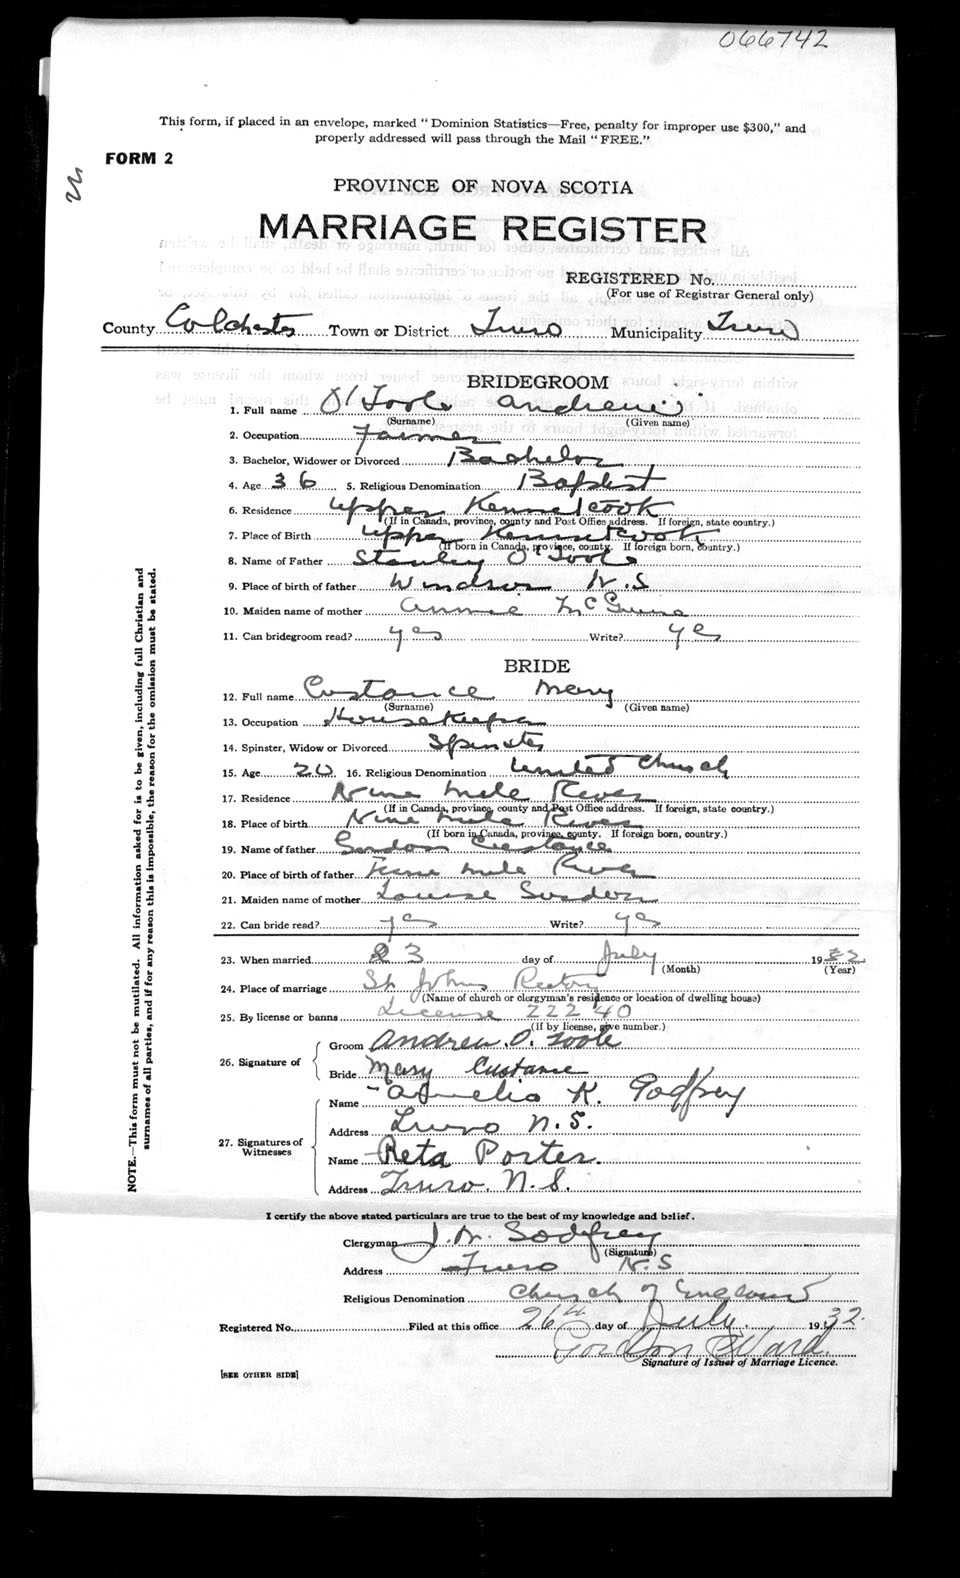 066742
This form, if placed in an envelope, marked "Dominion Statistics—Free, penalty for improper use $300," and
properly addressed will pass through the Mail "FREE."
FORM 2
PROVINCE OF NOVA SCOTIA
MARRIAGE REGISTER
REGISTERED No.
(For use of Registrar General only)
County Colchester Town or District Truro Municipality Truro
BRIDEGROOM
1. Full name O'Toole Andrew
(Surname) (Given name)
2. Occupation Farmer
3. Bachelor, Widower or Divorced Bachelor
4. Age 36 5. Religious Denomination Baptist
6. Residence Upper Kennetcook
(If in Canada, province, county and Post Office address. If foreign, state country.)
7. Place of Birth Upper Kennetcook
(If born in Canada, province, county. If foreign born, country.)
8. Name of Father Stanley O'Toole
9. Place of birth of father Windsor N.S
10. Maiden name of mother Annie
11. Can bridegroom read? yes Write? yes
BRIDE
12. Full name Custance Mary
(Surname) (Given name)
13. Occupation Housekeeper
14. Spinster, Widow or Divorced Spinster
15. Age 20 16. Religious Denomination United Church
17. Residence Nine Mile River
(If in Canada, province, county and Post Office address. If foreign, state country.)
18. Place of birth Nine Mile River
(If born in Canada, province, county. If foreign born, country.)
19. Name of father Gordon Custance
20. Place of birth of father Mile River
21. Maiden name of mother Louise
22. Can bride read? yes Write? yes
23. When married 23 day of July 1932
(Month) (Year)
24. Place of marriage St Johns Rectory
(Name of church or clergyman's residence or location of dwelling house)
25. By license or banns License 22240
(If by license, give number.)
26. Signature of
Groom Andrew O. Toole
Bride Mary Custance
27. Signatures of Witnesses
Name Amelia K. Godfrey
Address Truro N.S.
Name Reta Porter.
Address Truro. N.S.
I certify the above stated particulars are true to the best of my knowledge and belief.
Clergyman J. W. Godfrey
(Signature)
Address Truro N.S
Religious Denomination Church of England
Registered No. Filed at this office 26th day of July 1932.
Gordon Ward.
Signature of Issuer of Marriage Licence.
[SEE OTHER SIDE]
NOTE.—This form must not be mutilated. All information asked for is to be given, including full Christian and
surnames of all parties, and if for any reason this is impossible, the reason for the omission must be stated.